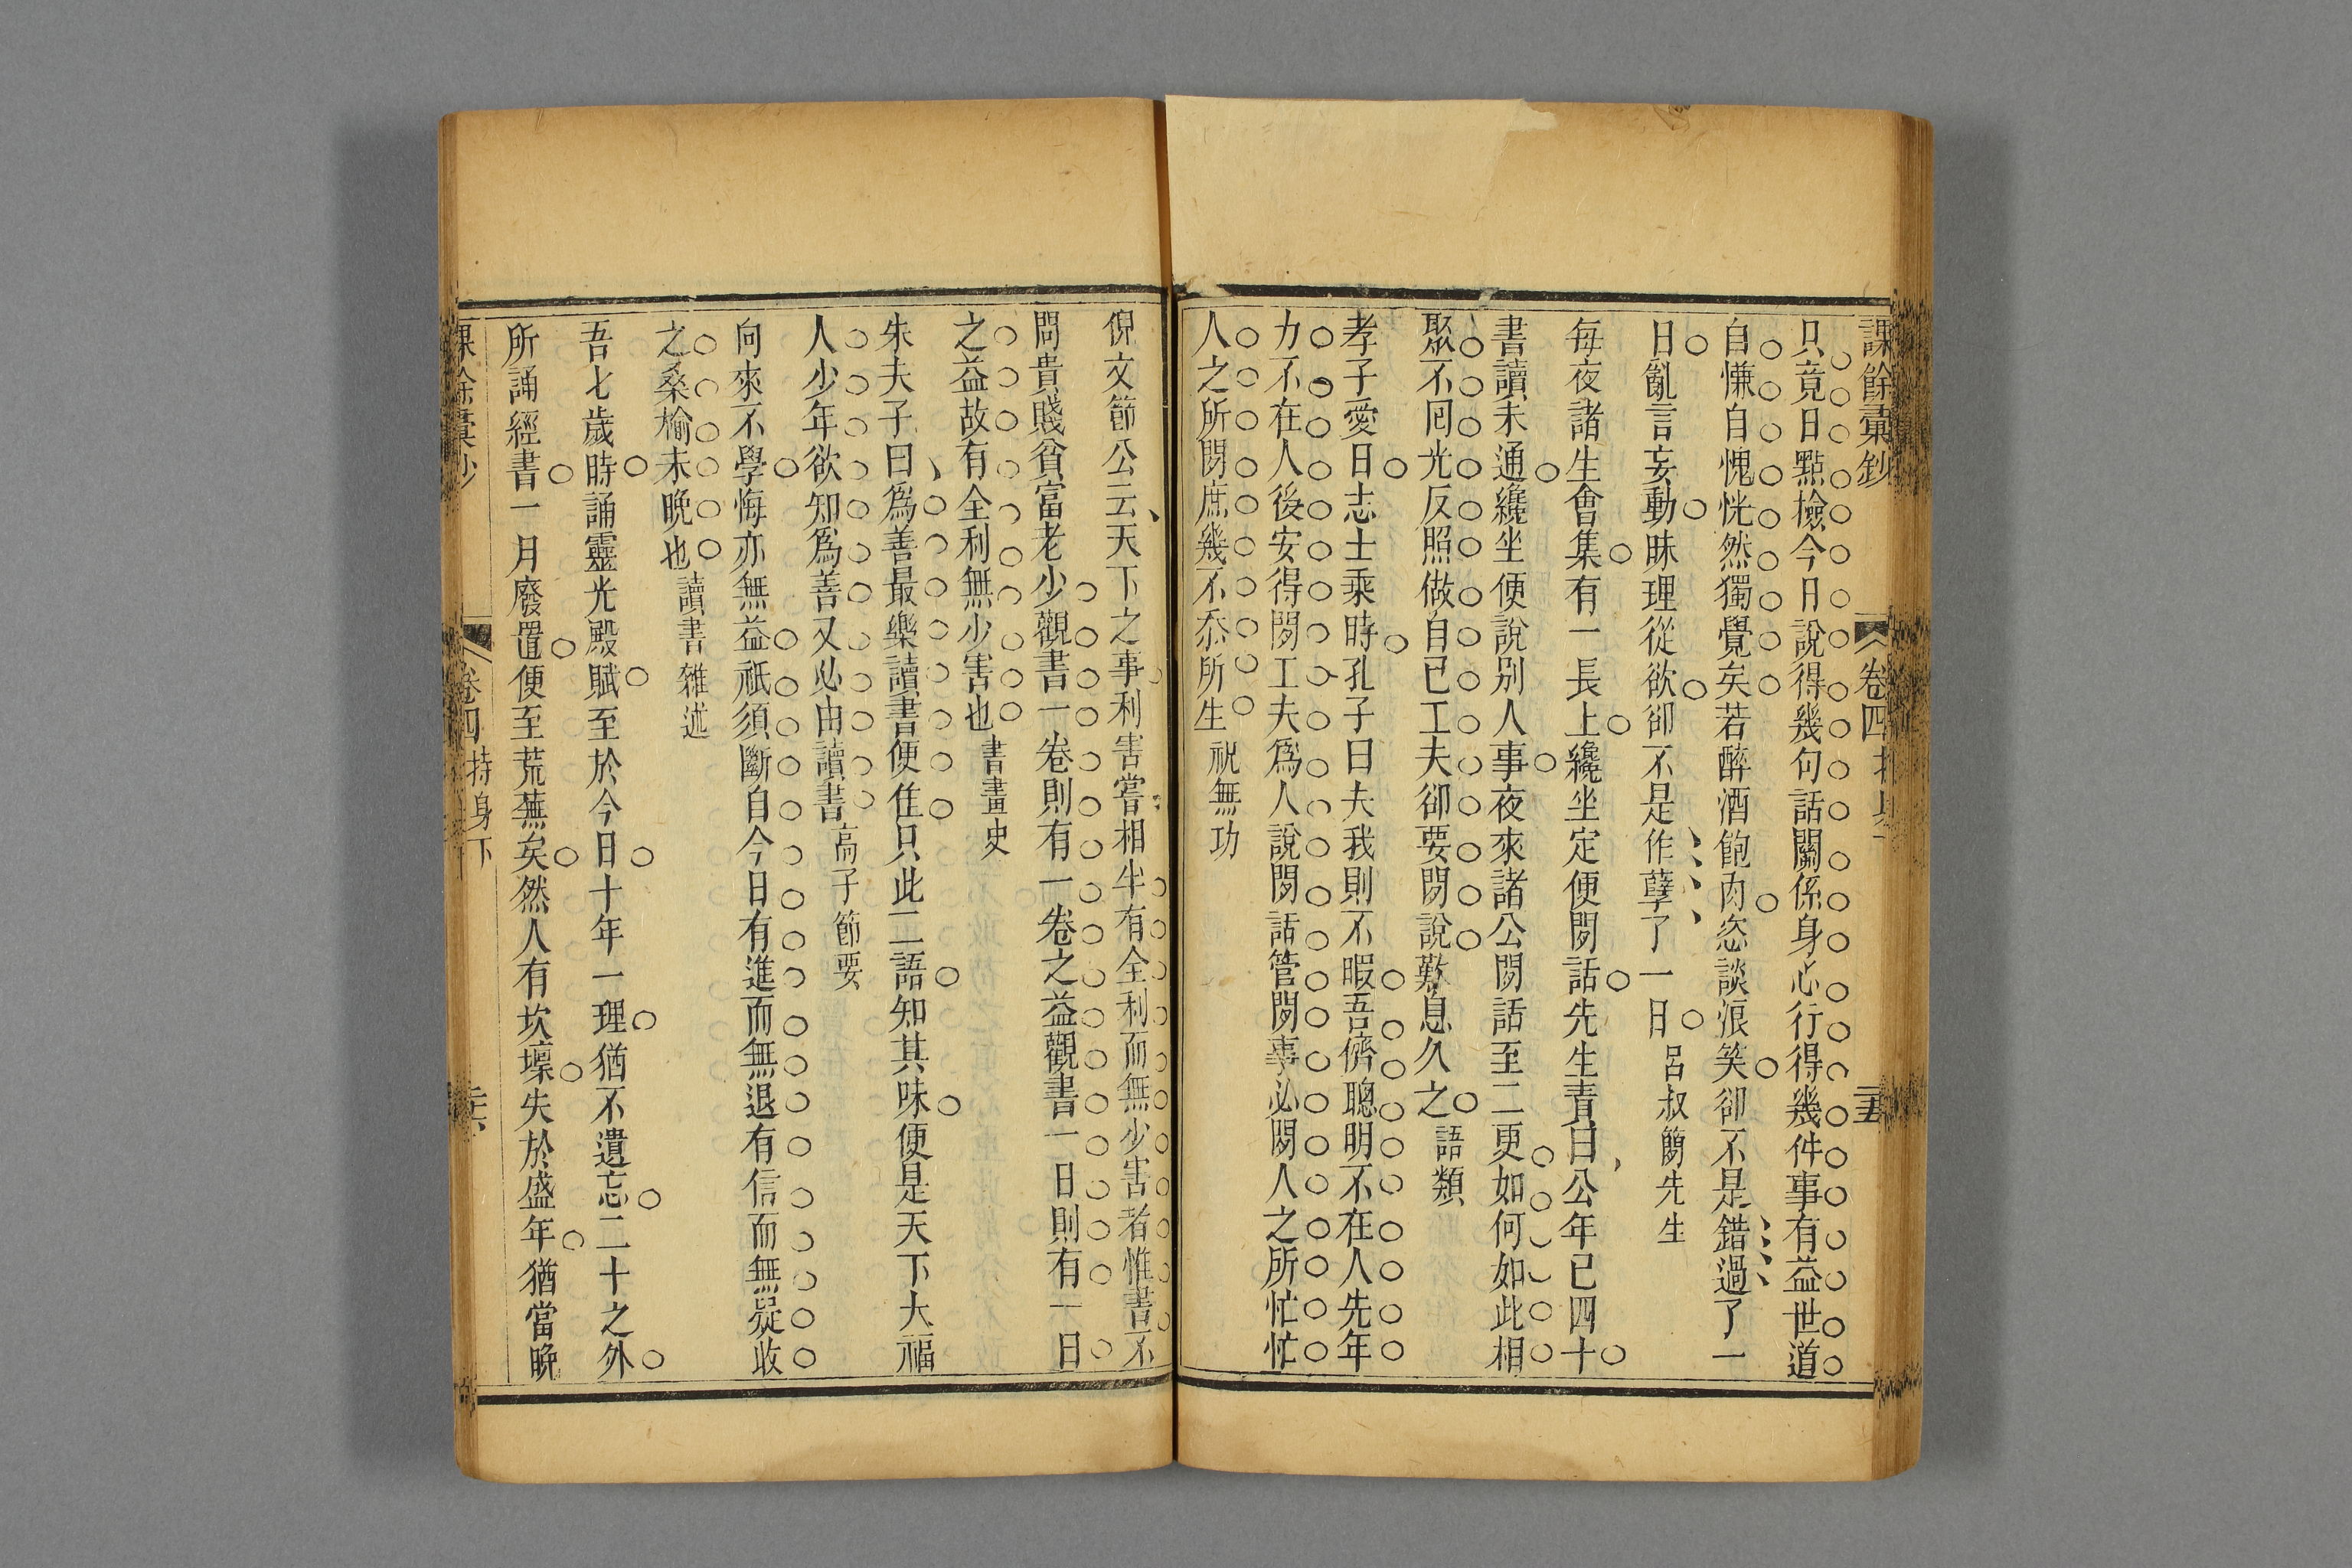 課餘彙鈔
卷四
只竟日點檢今日說得幾句話關係身心行得幾件事有益世道
自慊自愧恍然獨覺矣若醉酒飽肉恣談浪笑卻不是錯過了一
日亂言妄動昧理從欲卻不是作孽了一日 呂叔簡先生
每夜諸生會集有一長上纔坐定便閒話先生責曰公年已四十
書讀未通纔坐便說別人事夜來諸公閒話至二更如何如此相
聚不囘光反照做自己工夫卻要閒說歎息久之 語類
孝子愛日志士乘時孔子曰夫我則不暇吾儕聰明不在人先年
力不在人後安得閒工夫爲人說閒話管閒事必閒人之所忙忙
人之所閒庶幾不忝所生 祝無功
倪文節公云天下之事利害嘗相半有全利而無少害者惟書不
問貴賤貧富老少觀書一卷則有一卷之益觀書一日則有一日
之益故有全利無少害也 書畫史
朱夫子曰爲善最樂讀書便佳只此二語知其味便是天下大福
人少年欲知爲善又必由讀書 高子節要
向來不學悔亦無益祇須斷自今日有進而無退有信而無疑收
之桑榆未晩也 讀書雜述
吾七歲時誦靈光殿賦至於今日十年一理猶不遺忘二十之外
所誦經書一月廢置便至荒蕪矣然人有坎壈失於盛年猶當晚
課餘彙鈔
卷四 持身下